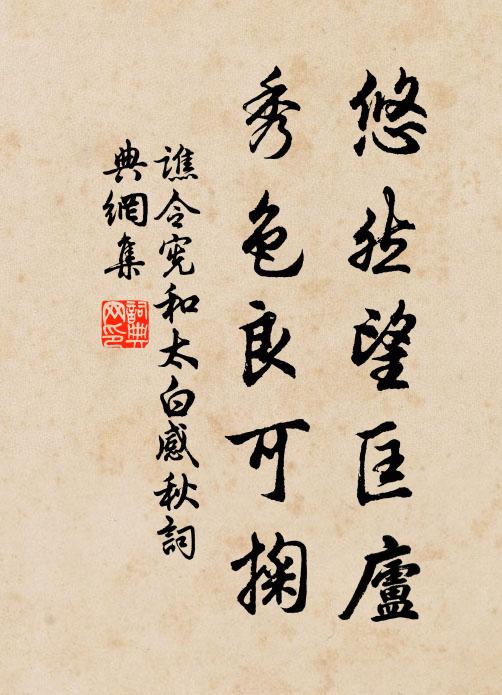 悠然望匡廬
秀色良可掬
譙令憲和太白感秋詞
典網集
詞典
网印